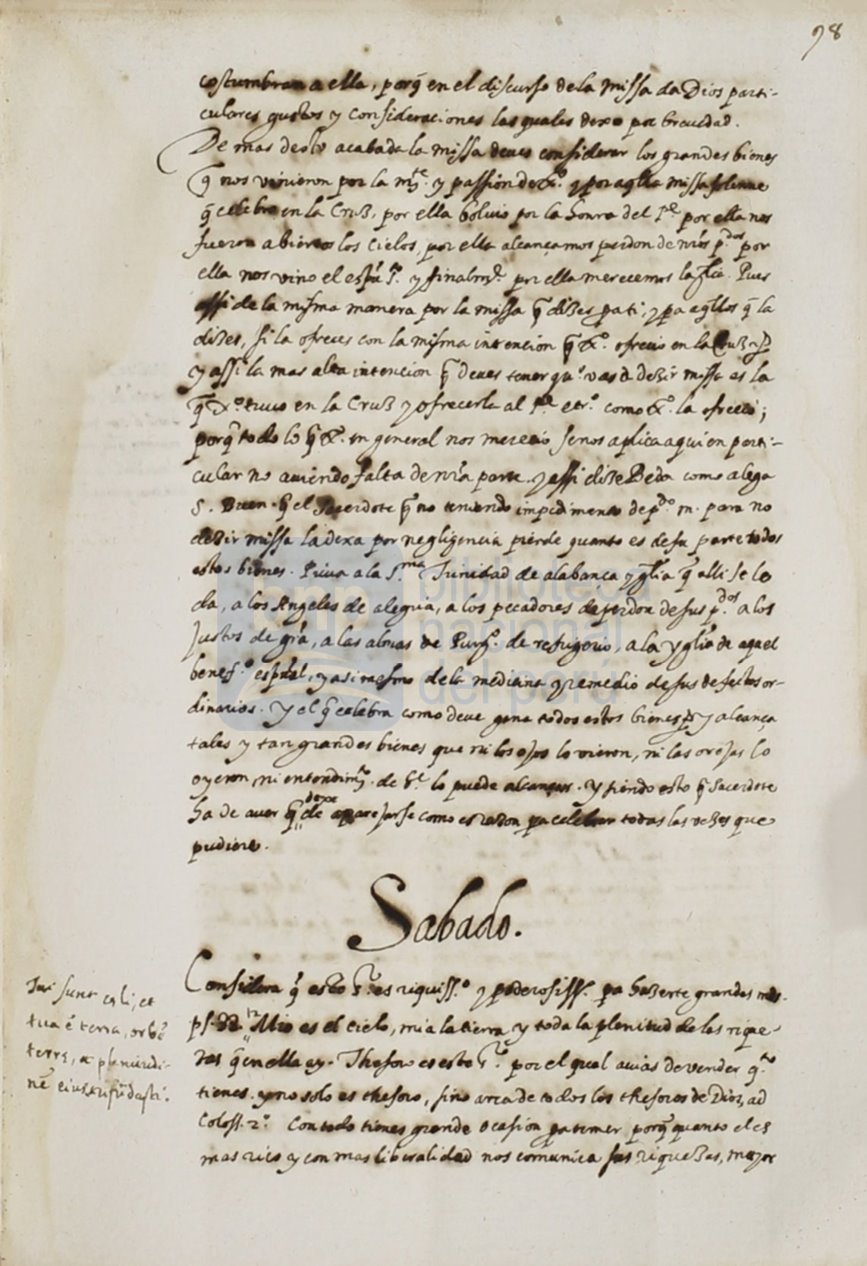 98
costumbran a ella, porq̃ en el discurso de la missa da Dios parti-
culares gustos y consideraciones las quales dexo por brevedad.
De mas desto acabada la missa deves considerar los grandes bienes
q̃ nos vinieron por la mᵗᵉ. y passion de xᵒ. y por aq̃lla missa solenne
q̃ celebro en la Cruz, por ella bolvio por la honra del Pᵉ por ella nos
fueron abiertos los cielos, por ella alcançamos perdon de nr̃os pᵈᵒˢ por
ella nos vino el espũ Sᵗᵒ. y finalmᵗᵉ. por ella merecemos la gl̃ia. Pues
assi de la misma manera por la missa q̃ dizes pa ti, y pa aq̃llos q̃ la
dizes, si la ofreces con la misma intencion q̃ xᵒ. ofrecio en la Cruz
y assi la mas alta intencion q̃ deves tener quᵒ vas a dezir missa es la
q̃ xᵒ tuvo en la Cruz y ofrecerla al Pᵉ etrᵒ. como xᵒ. la ofrecio;
porq̃ todo lo q̃ xᵒ. en general nos merecio se nos aplica aqui en parti-
cular no aviendo falta de nr̃a parte. y assi dize Beda como alega
S. Buen. q̃ el Sacerdote q̃ no teniendo impedimento de pᵈᵒ m. para no
dezir missa la dexa por negligencia pierde quanto es de su parte todos
estos bienes. Priva a la Sᵐᵃ Trinidad de alabança y gl̃ia q̃ alli se le
da, a los Angeles de alegria, a los pecadores de perdon de sus pᵈᵒˢ a los
justos de gr̃a, a las almas de Purgᵒ. de refrigerio, a la ygl̃ia de aquel
benefᵒ espũal, y a si mesmo de la medicina y remedio de sus defectos or-
dinarios. Y el q̃ celebra como deve gana todos estos bienes y alcança
tales y tan grandes bienes que ni los ojos lo vieron, ni las orejas lo
oyeron, ni entendimᵗᵒ. de hᵉ lo puede alcançar. Y siendo esto q̃ Sacerdote
ha de aver q̃ dexe de aparejarse como es razon pa celebrar todas las vezes que
pudiere.
Sabado.
Considera q̃ este Sᵒʳ es riquissᵒ y poderosissᵒ. pa hazerte grandes
Mio es el cielo, mia la tierra y toda la plenitud de las rique-
zas q̃ en ella ay. Thesoro es este Sᵒʳ por el qual avias de vender qᵗᵒ
tienes. y no solo es thesoro, sino arca de todos los thesoros de Dios, ad
Coloss. 2º. Con todo tienes grande ocasion pa temer porq̃ quanto el es
mas rico y con mas liberalidad nos comunica sus riquezas, mayor
Tui sunt cæli, et
tua ẽ terra, orbẽ
terræ, et plenitudi-
nẽ eius tu fũdasti.